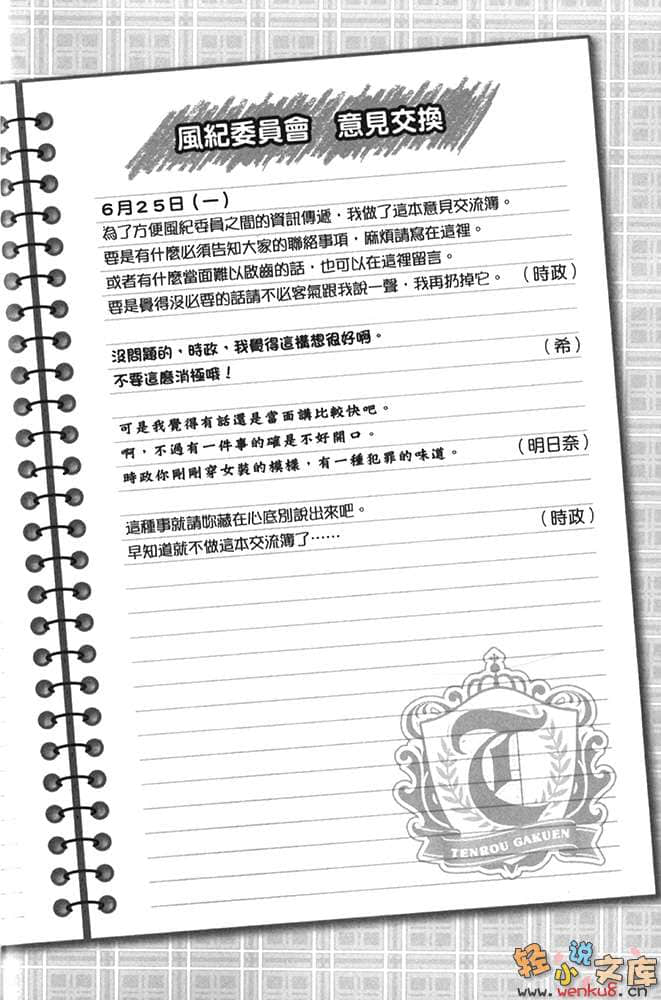 風紀委員會　意見交換
6月25日(一)
為了方便風紀委員之間的資訊傳遞，我做了這本意見交流簿。
要是有什麼必須告知大家的聯絡事項，麻煩請寫在這裡。
或者有什麼當面難以啟齒的話，也可以在這裡留言。
要是覺得沒必要的話請不必客氣跟我說一聲，我再扔掉它。（時政）
沒問題的，時政，我覺得這構想很好啊。
不要這麼消極哦！（希）
可是我覺得有話還是當面講比較快吧。
啊，不過有一件事的確是不好開口。
時政你剛剛穿女裝的模樣，有一種犯罪的味道。（明日奈）
這種事就請妳藏在心底別說出來吧。
早知道就不做這本交流簿了……（時政）
T
TENROU GAKUEN
轻小说文库
www.wenku8.cn